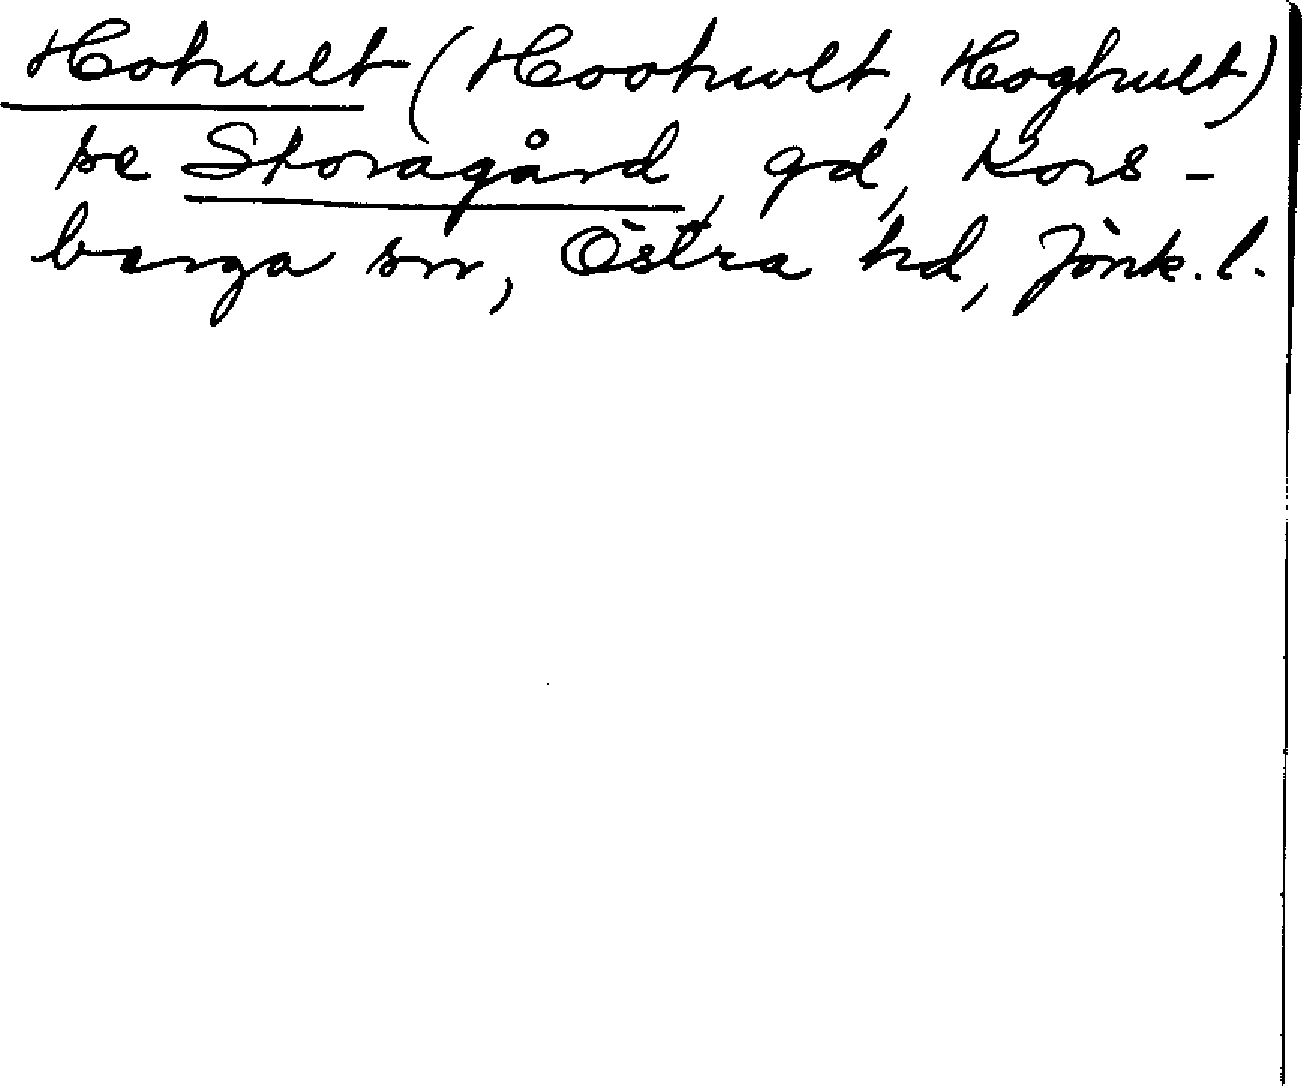 Hohult (Hoohwlt, Hoghult)
se Storagård, gd, Kors-
berga sn, Östra hd, Jönk. l.